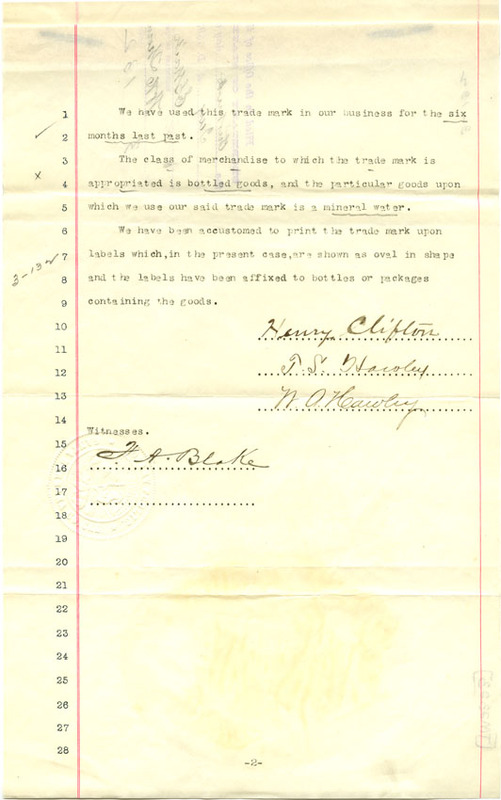 1 We have used this trade mark in our business for the six
2 months last past.
3 The class of merchandise to which the trade mark is
4 appropriated is bottled goods, and the particular goods upon
5 which we use our said trade mark is a mineral water.
6 We have been accustomed to print the trade mark upon
7 labels which, in the present case, are shown as oval in shape
8 and the labels have been affixed to bottles or packages
9 containing the goods.
10 Henry Clifton
11
12 T. S. Hawley
13 W. A. Hawley
14 Witnesses.
15
16 F. A. Blake
17
18
19
20
21
22
23
24
25
26
27
28
-2-